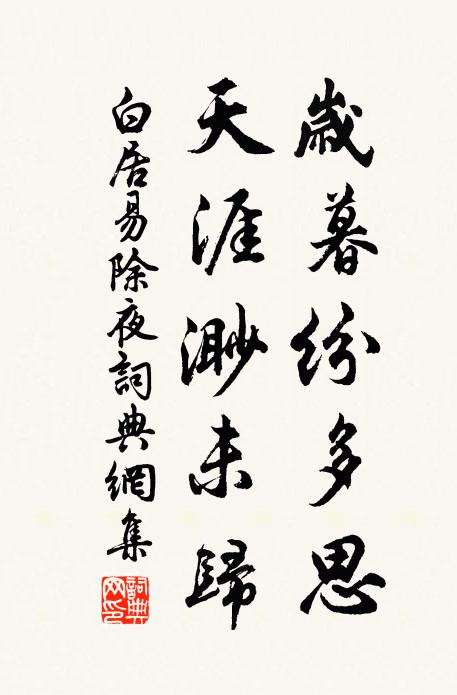 歲暮紛多思
天涯渺未歸
白居易除夜詞典網集
詞典網印